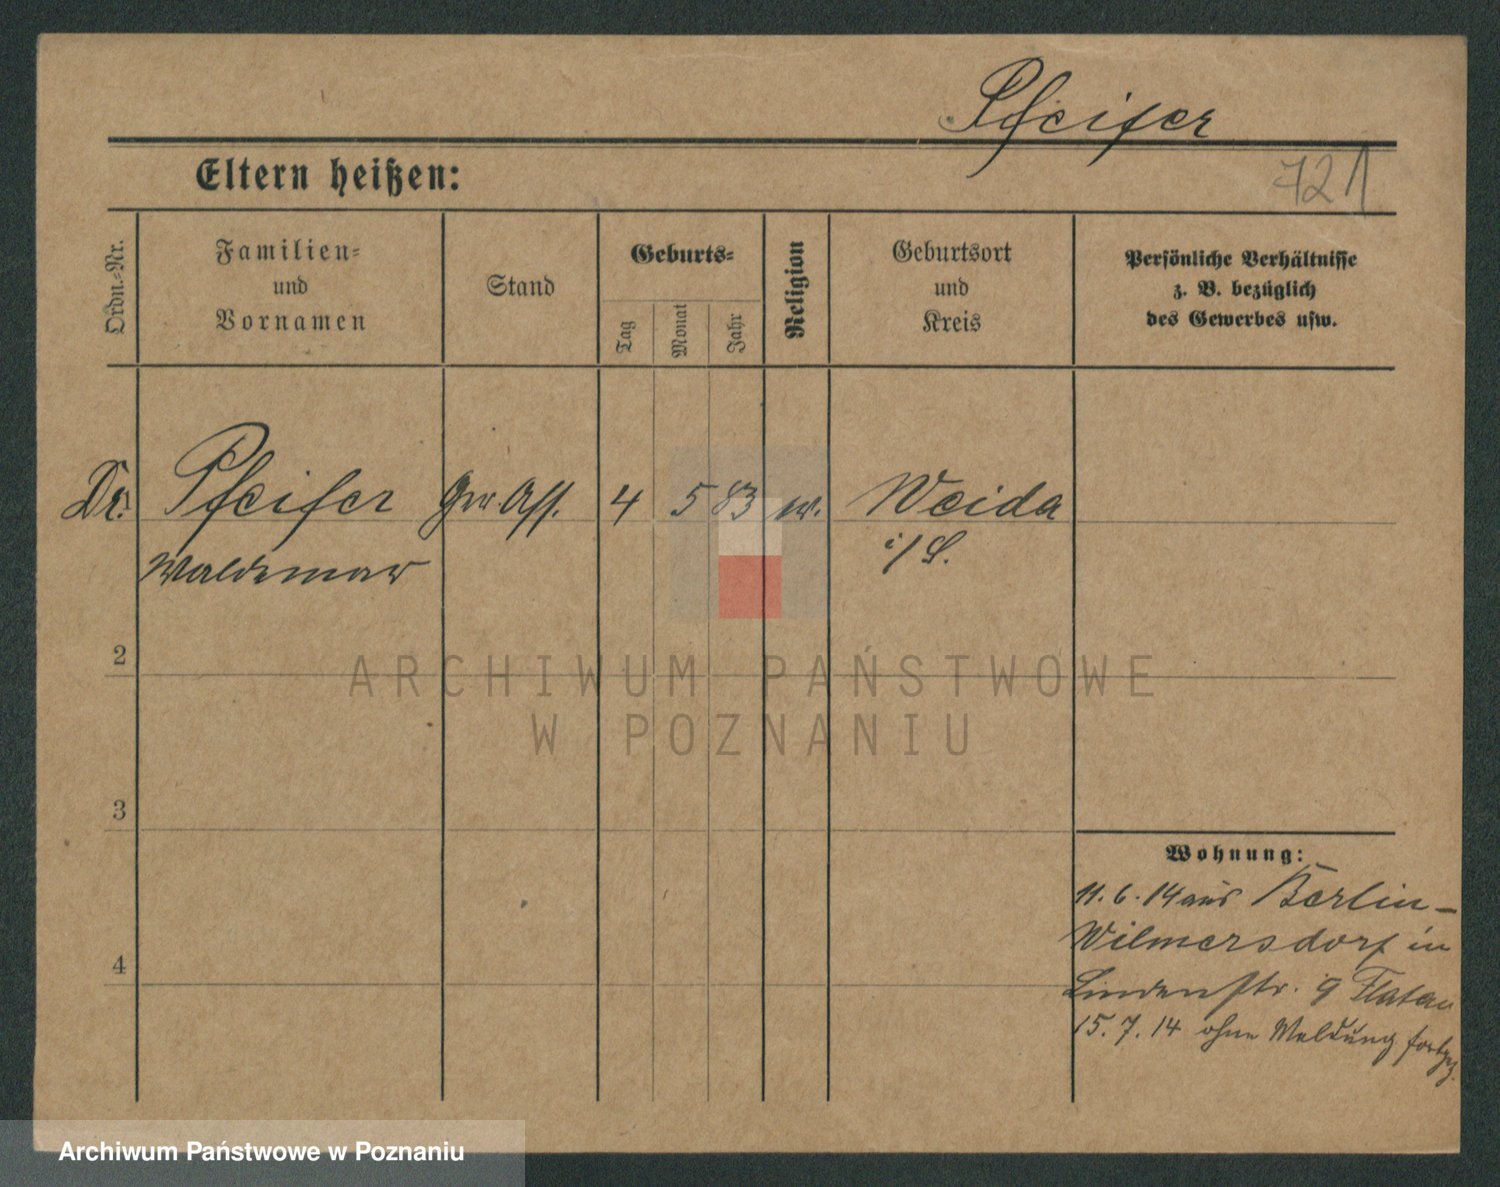 Pfeifer
721
Eltern heißen:
Ordn.-Nr.
Familien-
und
Vornamen
Stand
Geburts-
Tag
Monat
Jahr
Religion
Geburtsort
und
Kreis
Persönliche Verhältnisse
z. B. bezüglich
des Gewerbes usw.
Dr. Pfeifer Ger. Ass. 4 5 83 Weida
Waldemar i/S.
2
3
4
Wohnung:
11. 6. 14 aus Berlin-
Wilmersdorf in
Lindenstr. 9 Flatau
15. 7. 14 ohne Meldung fortgez.
ARCHIWUM PAŃSTWOWE
W POZNANIU
Archiwum Państwowe w Poznaniu